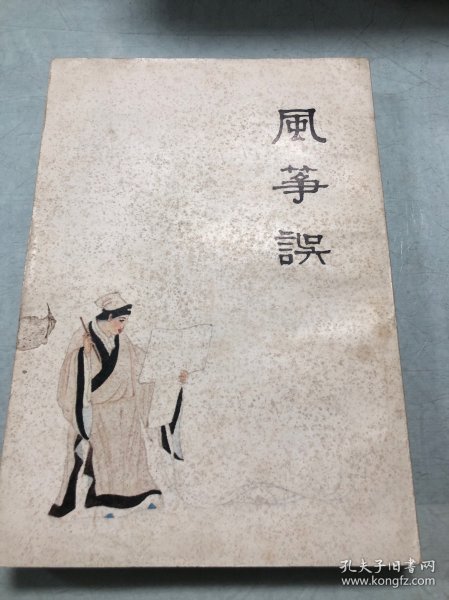 風箏誤
孔夫子旧书网
www.kongfz.com